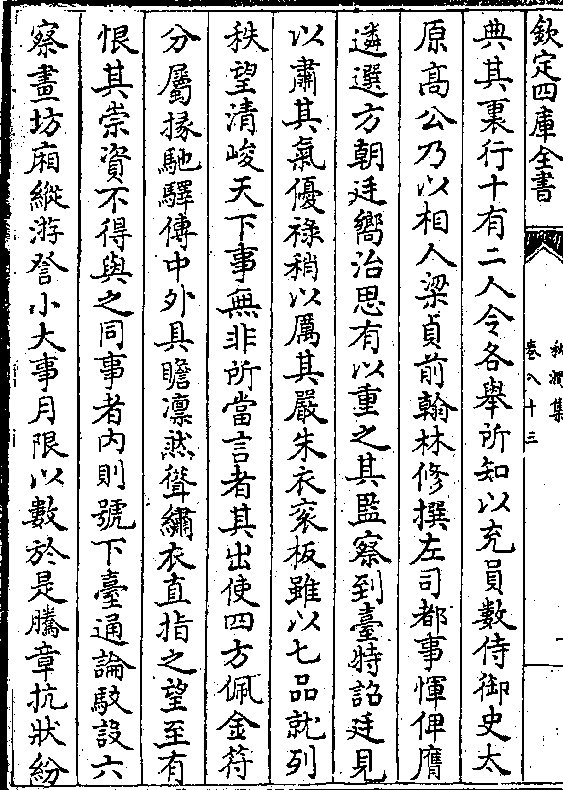 欽定四庫全書
秋澗集
卷八十三
典其裏行十有二人令各舉所知以充員數侍御史太
原高公乃以相人梁貞前翰林修撰左司都事惲俾膺
遴選方朝廷嚮治思有以重之其監察到臺特詔廷見
以肅其氣優祿稍以厲其嚴朱衣衮板雖以七品就列
秩望清峻天下事無非所當言者其出使四方佩金符
分屬掾馳驛傳中外具瞻凛然聳繡衣直指之望至有
恨其崇資不得與之同事者内則號下臺通論駮設六
察畫坊廂縱游詧小大事月限以數於是騰章抗狀紛